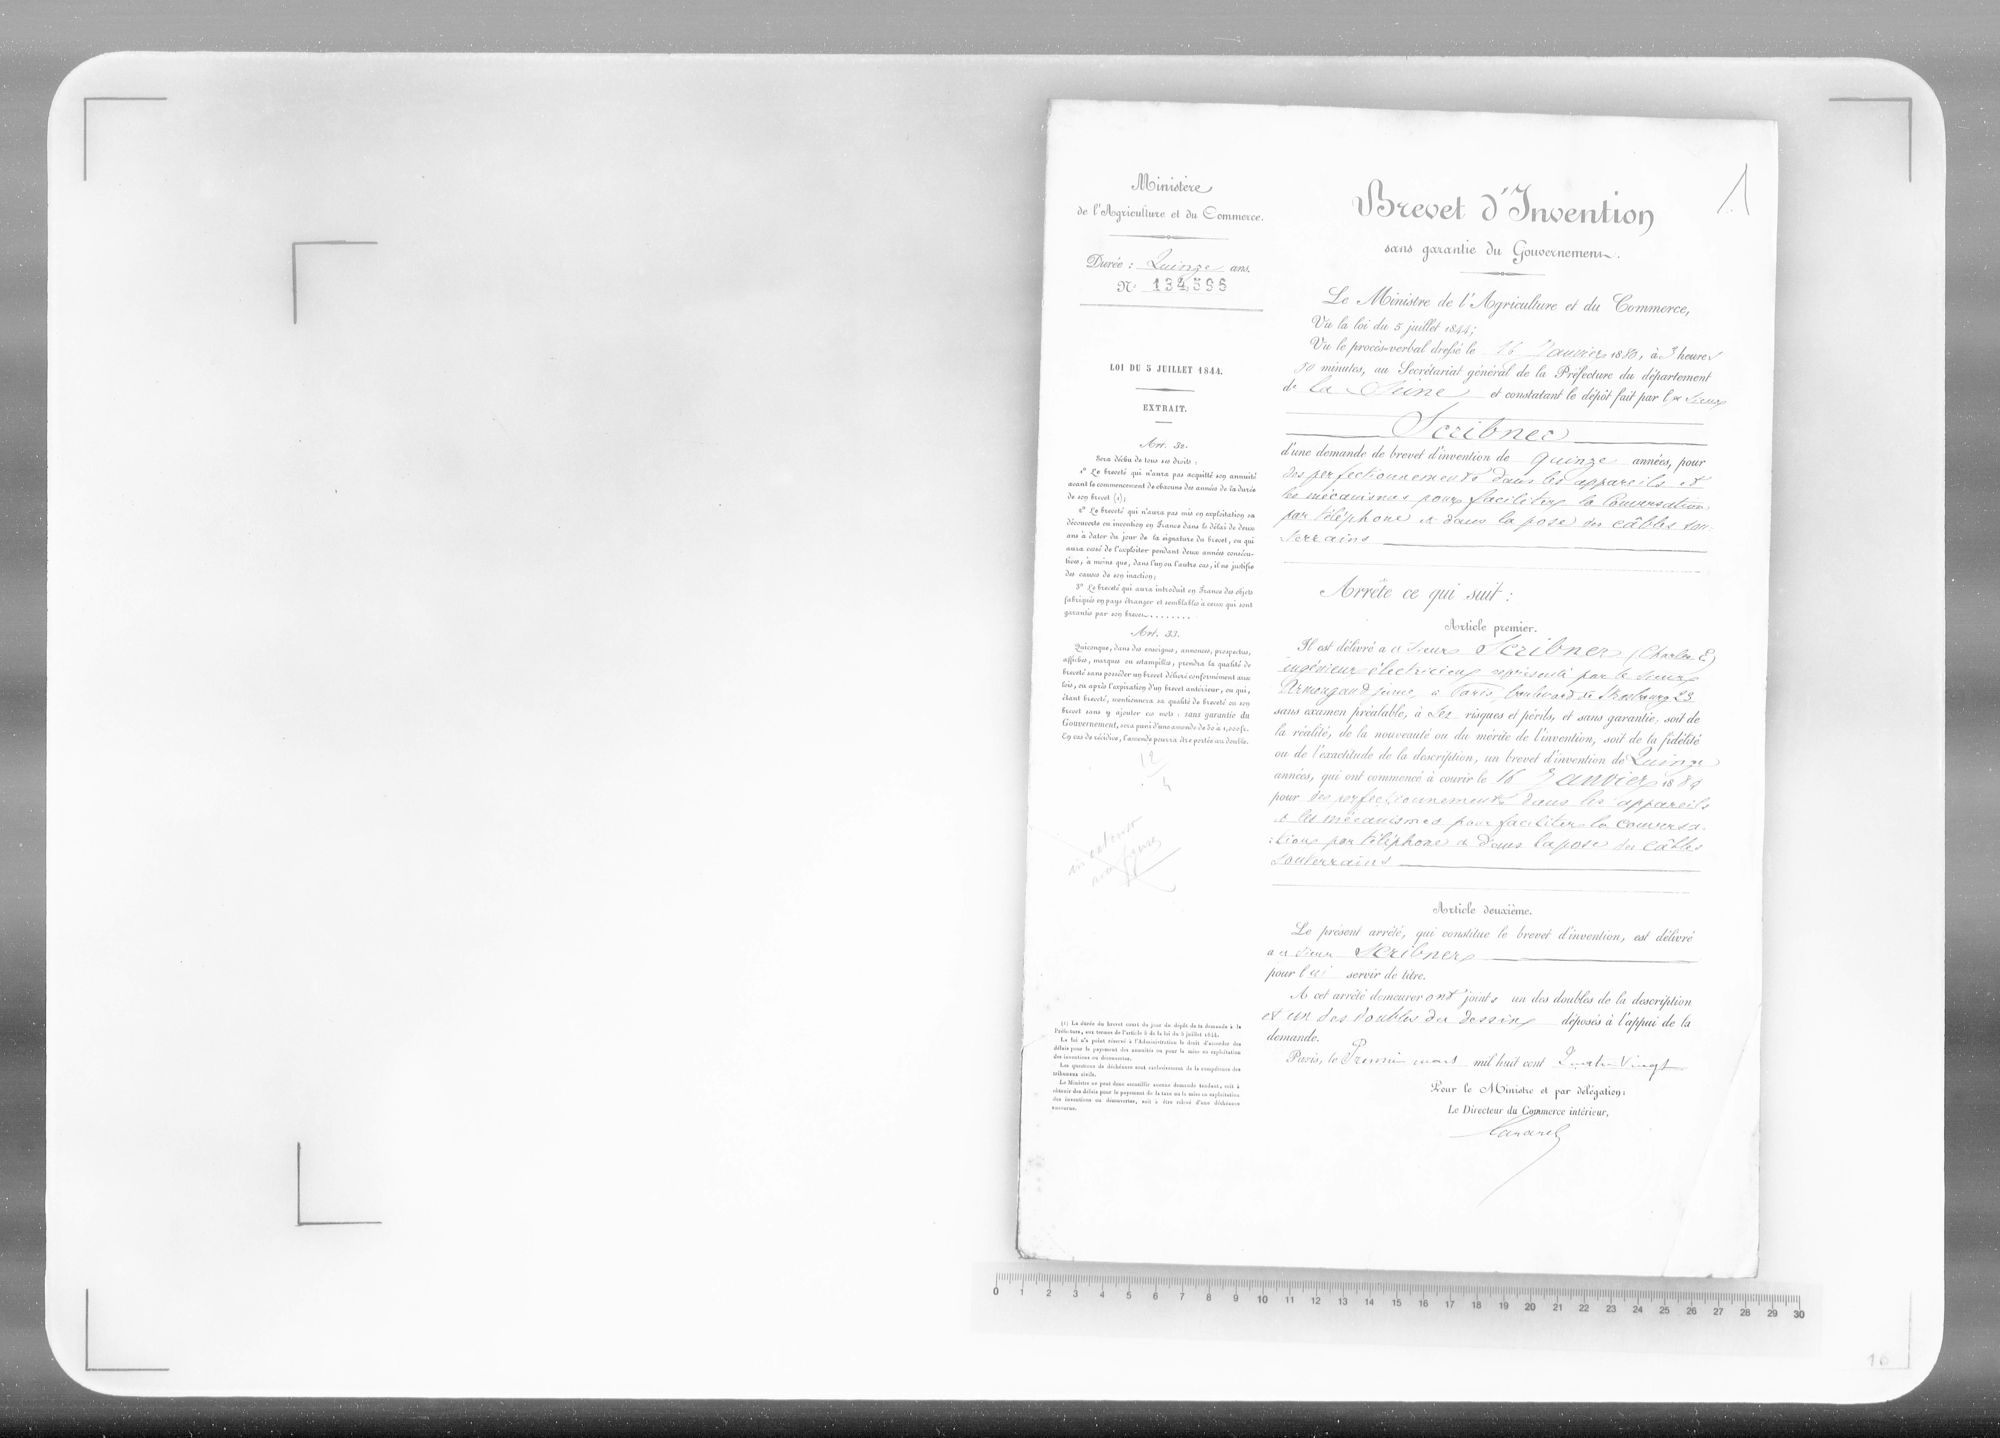 Ministère
de l'Agriculture et du Commerce.
Durée : Quinze ans.
N° 134,596
LOI DU 5 JUILLET 1844.
EXTRAIT.
Art. 32.
Sera déchu de tous ses droits :
1° Le breveté qui n'aura pas acquitté son annuité
avant le commencement de chacune des années de la durée
de son brevet (1);
2° Le breveté qui n'aura pas mis en exploitation sa
découverte ou invention en France dans le délai de deux
ans à dater du jour de la signature du brevet, ou qui
aura cessé de l'exploiter pendant deux années consécu-
tives, à moins que, dans l'un ou l'autre cas, il ne justifie
des causes de son inaction;
3° Le breveté qui aura introduit en France des objets
fabriqués en pays étranger et semblables à ceux qui sont
garantis par son brevet........
Art. 33.
Quiconque, dans des enseignes, annonces, prospectus,
affiches, marques ou estampilles, prendra la qualité de
breveté sans posséder un brevet délivré conformément aux
lois, ou après l'expiration d'un brevet antérieur, ou qui,
étant breveté, mentionnera sa qualité de breveté ou son
brevet sans y ajouter ces mots : sans garantie du
Gouvernement, sera puni d'une amende de 50 à 1,000 fr.
En cas de récidive, l'amende pourra être portée au double.
12
4
in extenso
(1) La durée du brevet court du jour du dépôt de la demande à la
Préfecture, aux termes de l'article 8 de la loi du 5 juillet 1844.
La loi n'a point réservé à l'Administration le droit d'accorder des
délais pour le payement des annuités ou pour la mise en exploitation
des inventions ou découvertes.
Les questions de déchéance sont exclusivement de la compétence des
tribunaux civils.
Le Ministre ne peut donc accueillir aucune demande tendant, soit à
obtenir des délais pour le payement de la taxe ou la mise en exploitation
des inventions ou découvertes, soit à être relevé d'une déchéance
encourue.
1
Brevet d'Invention
sans garantie du Gouvernement.
Le Ministre de l'Agriculture et du Commerce,
Vu la loi du 5 juillet 1844;
Vu le procès-verbal dressé le 16 Janvier 1880, à 3 heures
50 minutes, au Secrétariat général de la Préfecture du département
de la Seine et constatant le dépôt fait par le Sieur
Scribner
d'une demande de brevet d'invention de quinze années, pour
des perfectionnements dans les appareils et
les mécanismes pour faciliter la Conversation
par téléphone et dans la pose des câbles sou-
terrains
Arrête ce qui suit :
Article premier.
Il est délivré au Sieur Scribner (Charles E)
ingénieur électricien représenté par le Sieur
Armengaud jeune, à Paris, boulevard de Strasbourg 23
sans examen préalable, à ses risques et périls, et sans garantie, soit de
la réalité, de la nouveauté ou du mérite de l'invention, soit de la fidélité
ou de l'exactitude de la description, un brevet d'invention de Quinze
années, qui ont commencé à courir le 16 Janvier 1880
pour des perfectionnements dans les appareils
et les mécanismes pour faciliter la conversa-
tion par téléphone et dans la pose des câbles
souterrains
Article deuxième.
Le présent arrêté, qui constitue le brevet d'invention, est délivré
au Sieur Scribner
pour lui servir de titre.
A cet arrêté demeureront joints un des doubles de la description
et un des doubles des dessins déposés à l'appui de la
demande.
Paris, le Premier mars mil huit cent Quatre Vingt
Pour le Ministre et par délégation:
Le Directeur du Commerce intérieur,
0 1 2 3 4 5 6 7 8 9 10 11 12 13 14 15 16 17 18 19 20 21 22 23 24 25 26 27 28 29 30
16